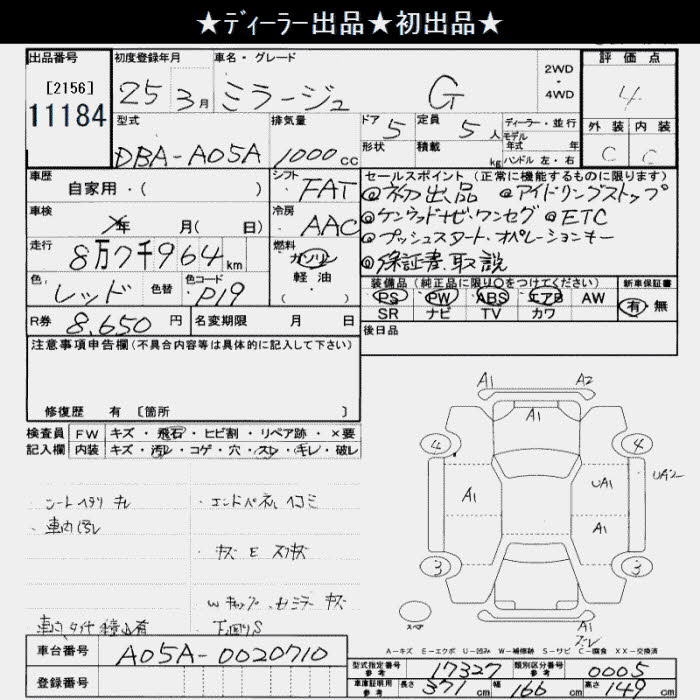 ★ディーラー出品★初出品★
出品番号 初度登録年月 車名・グレード 2WD・4WD 評価点
[2156] 11184 25 3月 ミラージュ G 4
型式 排気量 ドア 5 定員 5人 ディーラー・並行 外装 内装
DBA-A05A 1000cc 形状 積載 kg モデル年式 年 ハンドル 左・右 C C
車歴 自家用・( ) シフト FAT セールスポイント(正常に機能するものに限ります)
◎初出品 ◎アイドリングストップ
車検 年 月( 日) 冷房 AAC ◎ケンウッドナビ・ワンセグ ◎ETC
走行 8万7千964km 燃料 ガソリン 軽油 ◎プッシュスタート・オペレーションキー
◎保証書、取説
色 レッド 色替 色コード P19 装備品(純正品に限り○をつけてください) 新車保証書
PS PW ABS エアB AW 有・無
SR ナビ TV カワ
R券 8,650円 名変期限 月 日 後日品
注意事項申告欄(不具合内容等は具体的に記入して下さい)
修復歴 有 [箇所 ]
検査員 FW キズ・飛石・ヒビ割・リペア跡・×要
記入欄 内装 キズ・汚レ・コゲ・穴・スレ・キレ・破レ
・シートヘタリ キレ ・エンドパネルヘコミ
・車内汚レ
・キズ E スリキズ
下廻りS
A1 A2
A1
4 4
A1 UA1 UA2
A1
3 3
A1
スペア
A-キズ E-エクボ U-凹み W-補修跡 S-サビ C-腐食 XX-交換済
車台番号 A05A-0020710
型式指定番号 参考 17327 類別区分番号 参考 0005
登録番号
車庫証明用 参考 長さ 371cm 幅 166cm 高さ 149cm